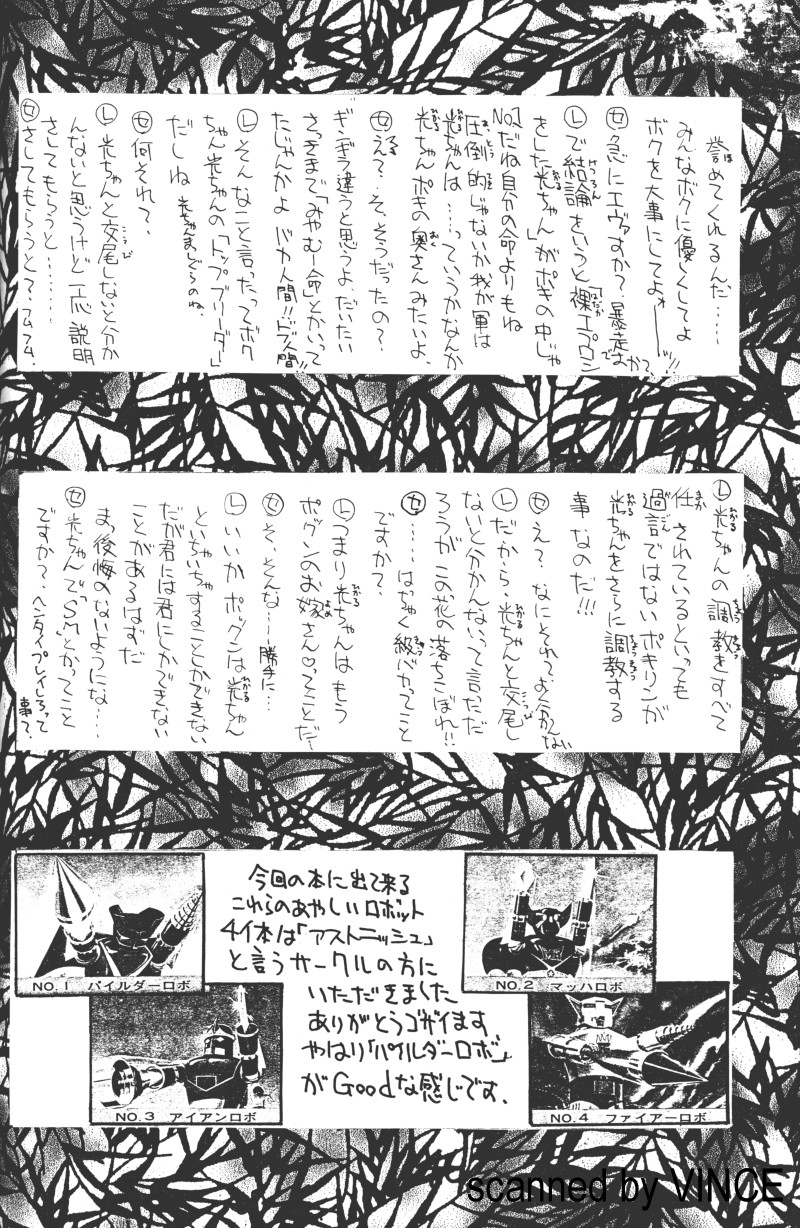 誉めてくれるんだ‥‥
みんなボクに優しくしてよ
ボクを大事にしてよォーーッ!!
㋝急にエヴァですか?暴走ですか?
Ⓛで結論をいうと「裸エプロン
をした光ちゃん」がポキの中じゃ
No.1だね自分の命よりもね
圧倒的じゃないか我が軍は
光ちゃんは‥‥っていうかなんか
光ちゃんポキの奥さんみたいよ。
㋝え?そ、そうだったの?
ギンギラ違うと思うよ、だいたい
さっきまで「みやむー命」とかいって
たじゃんかよ バカ人間!!ドブ人間!!
Ⓛそんなこと言ったってボク
ちゃん光ちゃんの「トップブリーダー」
だしね
㋝何それ?
Ⓛ光ちゃんと交尾しないと分か
んないと思うけど一応説明
さしてもらうと‥‥‥‥
㋝さしてもらうと?フムフム。
Ⓛ光ちゃんの調教をすべて
任されているといっても
過言ではないポキリンが
光ちゃんをさらに調教する
事なのだ!!!
㋝え?なにそれ?よく分かんない
Ⓛだから、光ちゃんと交尾し
ないと分かんないって言っただ
ろうがこの花の落ちこぼれ!!
㋝‥‥はちゃく級バカってこと
ですか?
Ⓛつまり光ちゃんはもう
ボグンのお嫁さん♡ってことだ‥
㋝そ、そんな‥‥勝手に‥‥
Ⓛいいかボックンは光ちゃん
といちゃいちゃすることしかできない
だが君には君にしかできない
ことがあるはずだ
まっ後悔のないようにな‥‥
㋝光ちゃんで"SM"とかってこと
ですか?ヘンタイプレイしろって
事?。
今回の本に出て来る
これらのあやしいロボット
4体は「アストニッシュ」
と言うサークルの方に
いただきました
ありがとうゴザイます
やはり「パイルダーロボ」
がGoodな感じです。
NO.1 パイルダーロボ
NO.2 マッハロボ
NO.3 アイアンロボ
NO.4 ファイアーロボ
scanned by VINCE